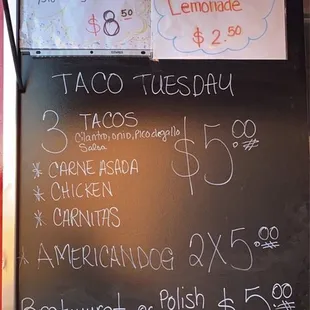 $8.50
Lemonade
$2.50
TACO TUESDAY
3 TACOS
Cilantro, onio, Pico de gallo
Salsa
$5.00
* CARNE ASADA
* CHICKEN
* CARNITAS
* AMERICANDOG 2X5.00
Polish $5.00